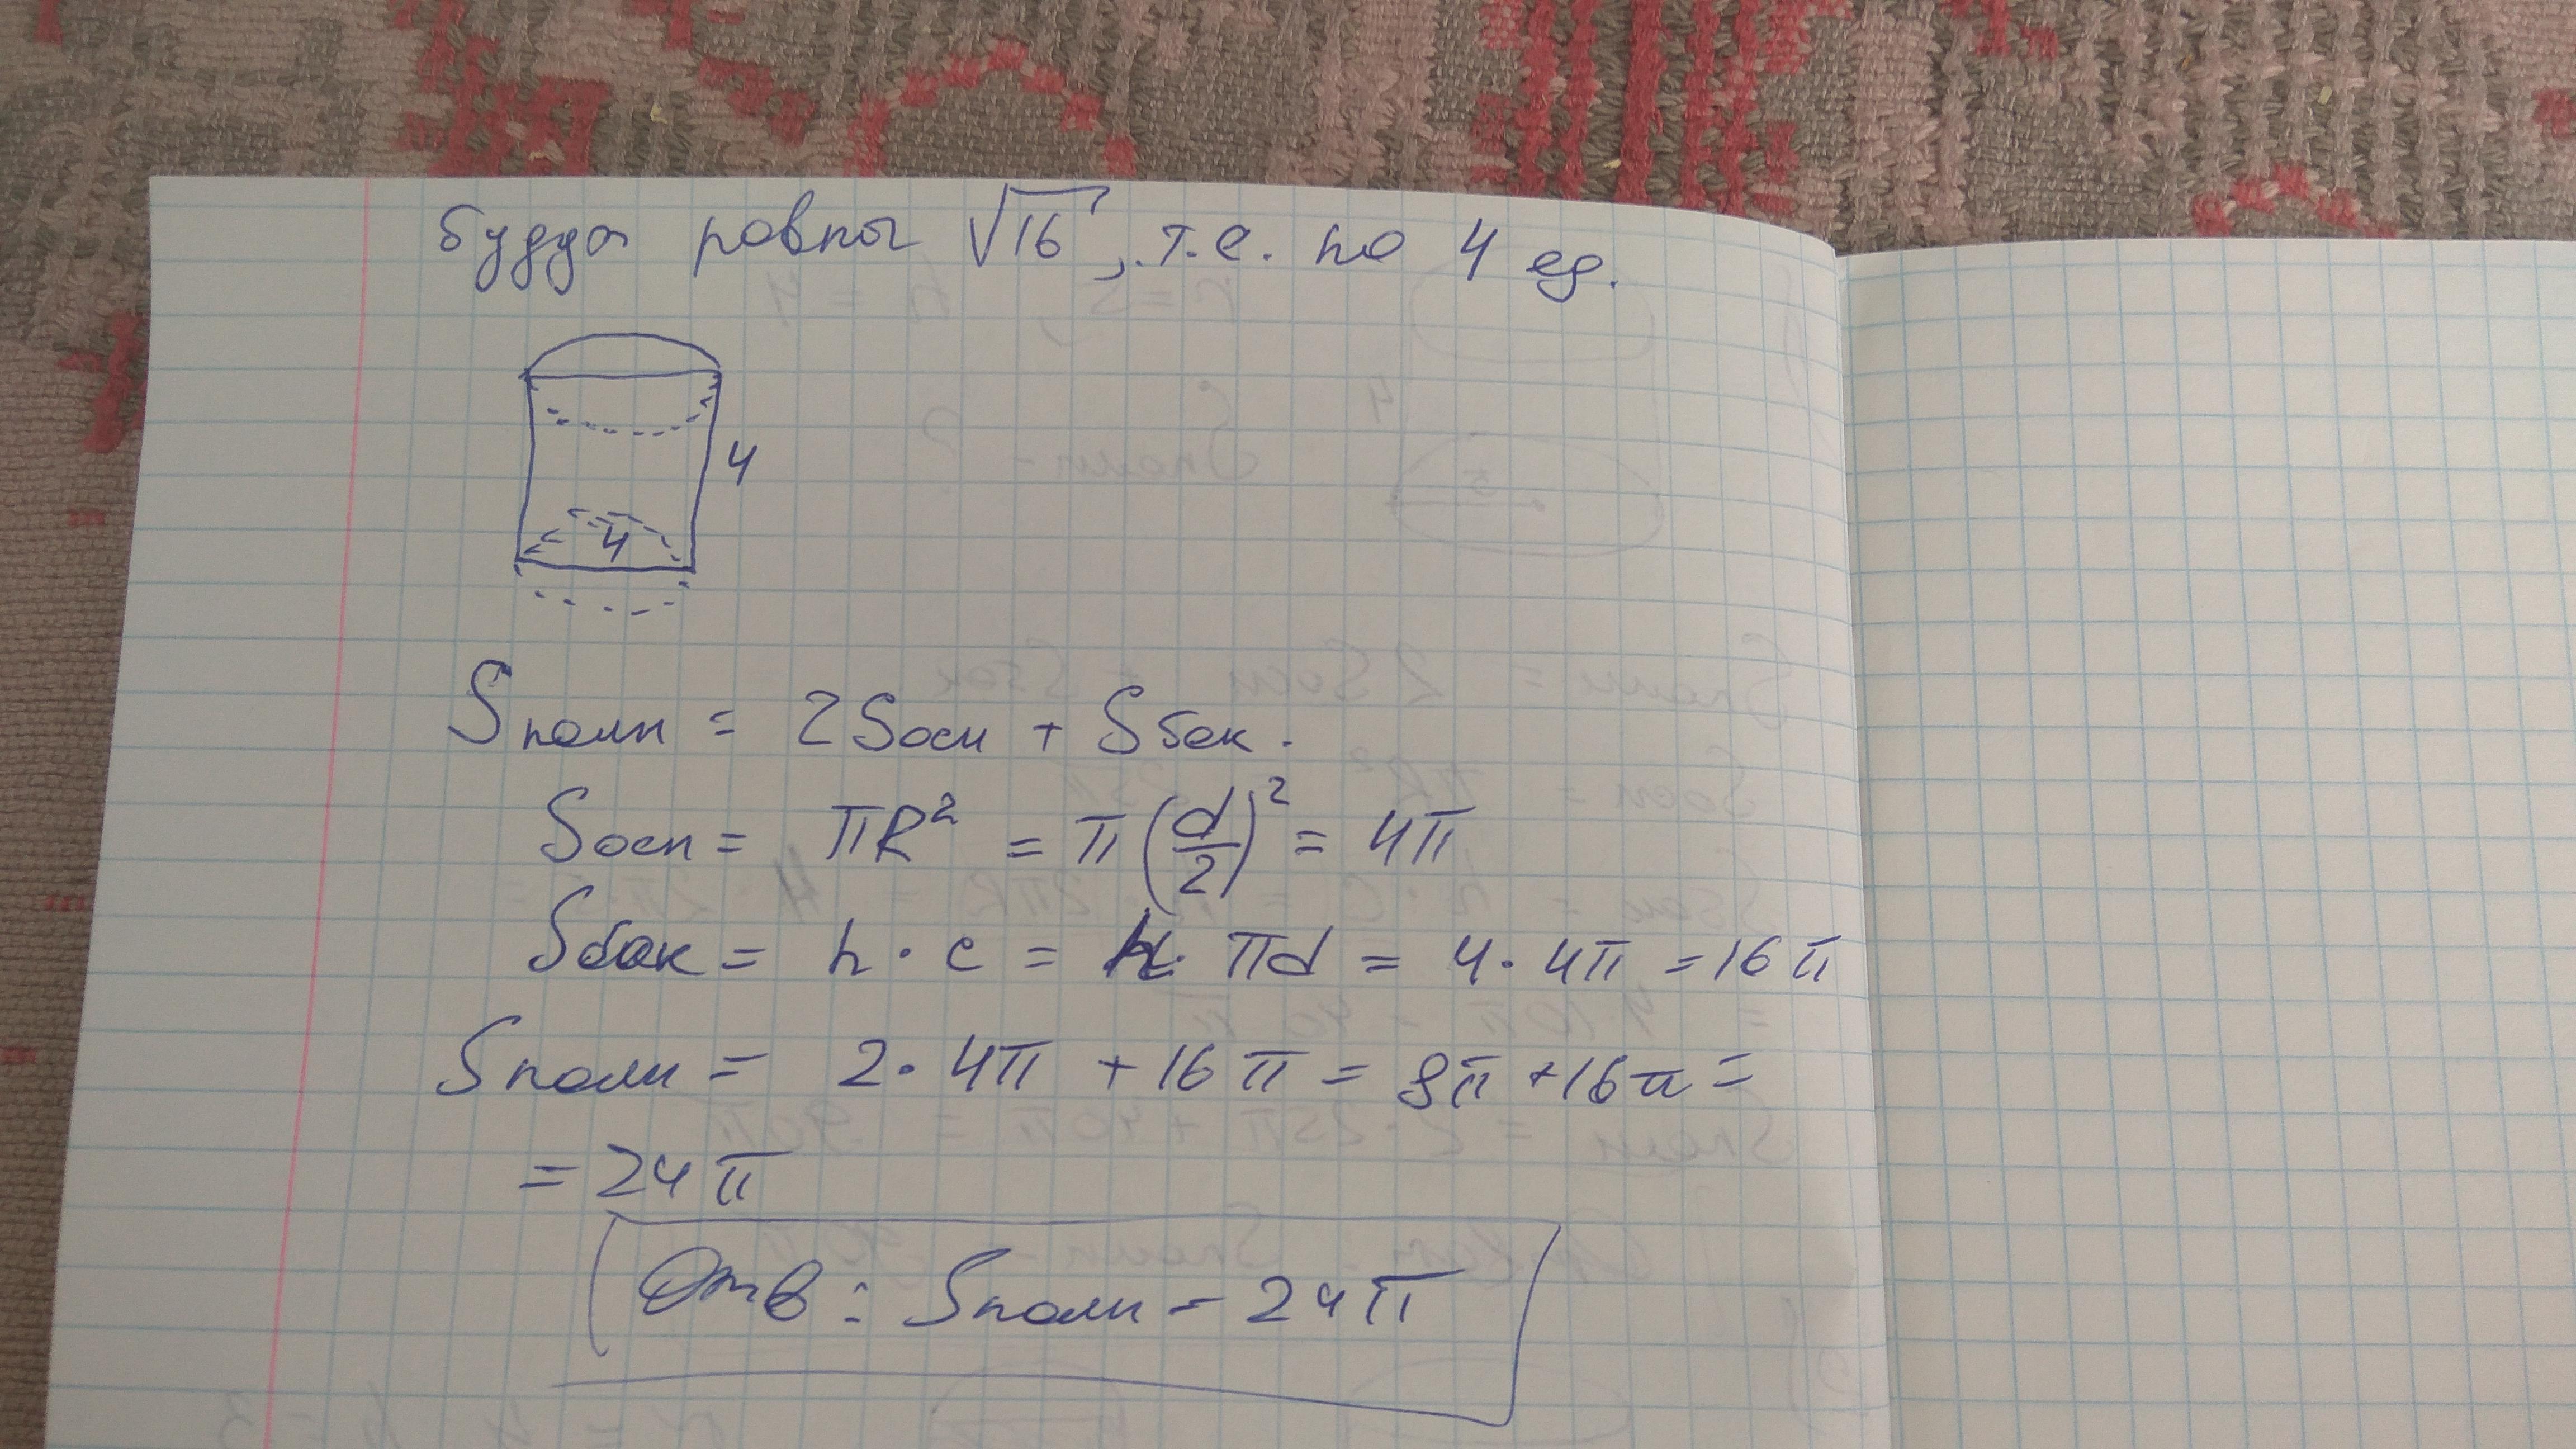 будут равны √16, т.е. по 4 ед.
4
4
Sполн = 2Sосн + Sбок.
Sосн = πR² = π(d/2)² = 4π
Sбок = h · c = h · πd = 4 · 4π = 16π
Sполн = 2 · 4π + 16π = 8π + 16π =
= 24π
Отв: Sполн = 24π